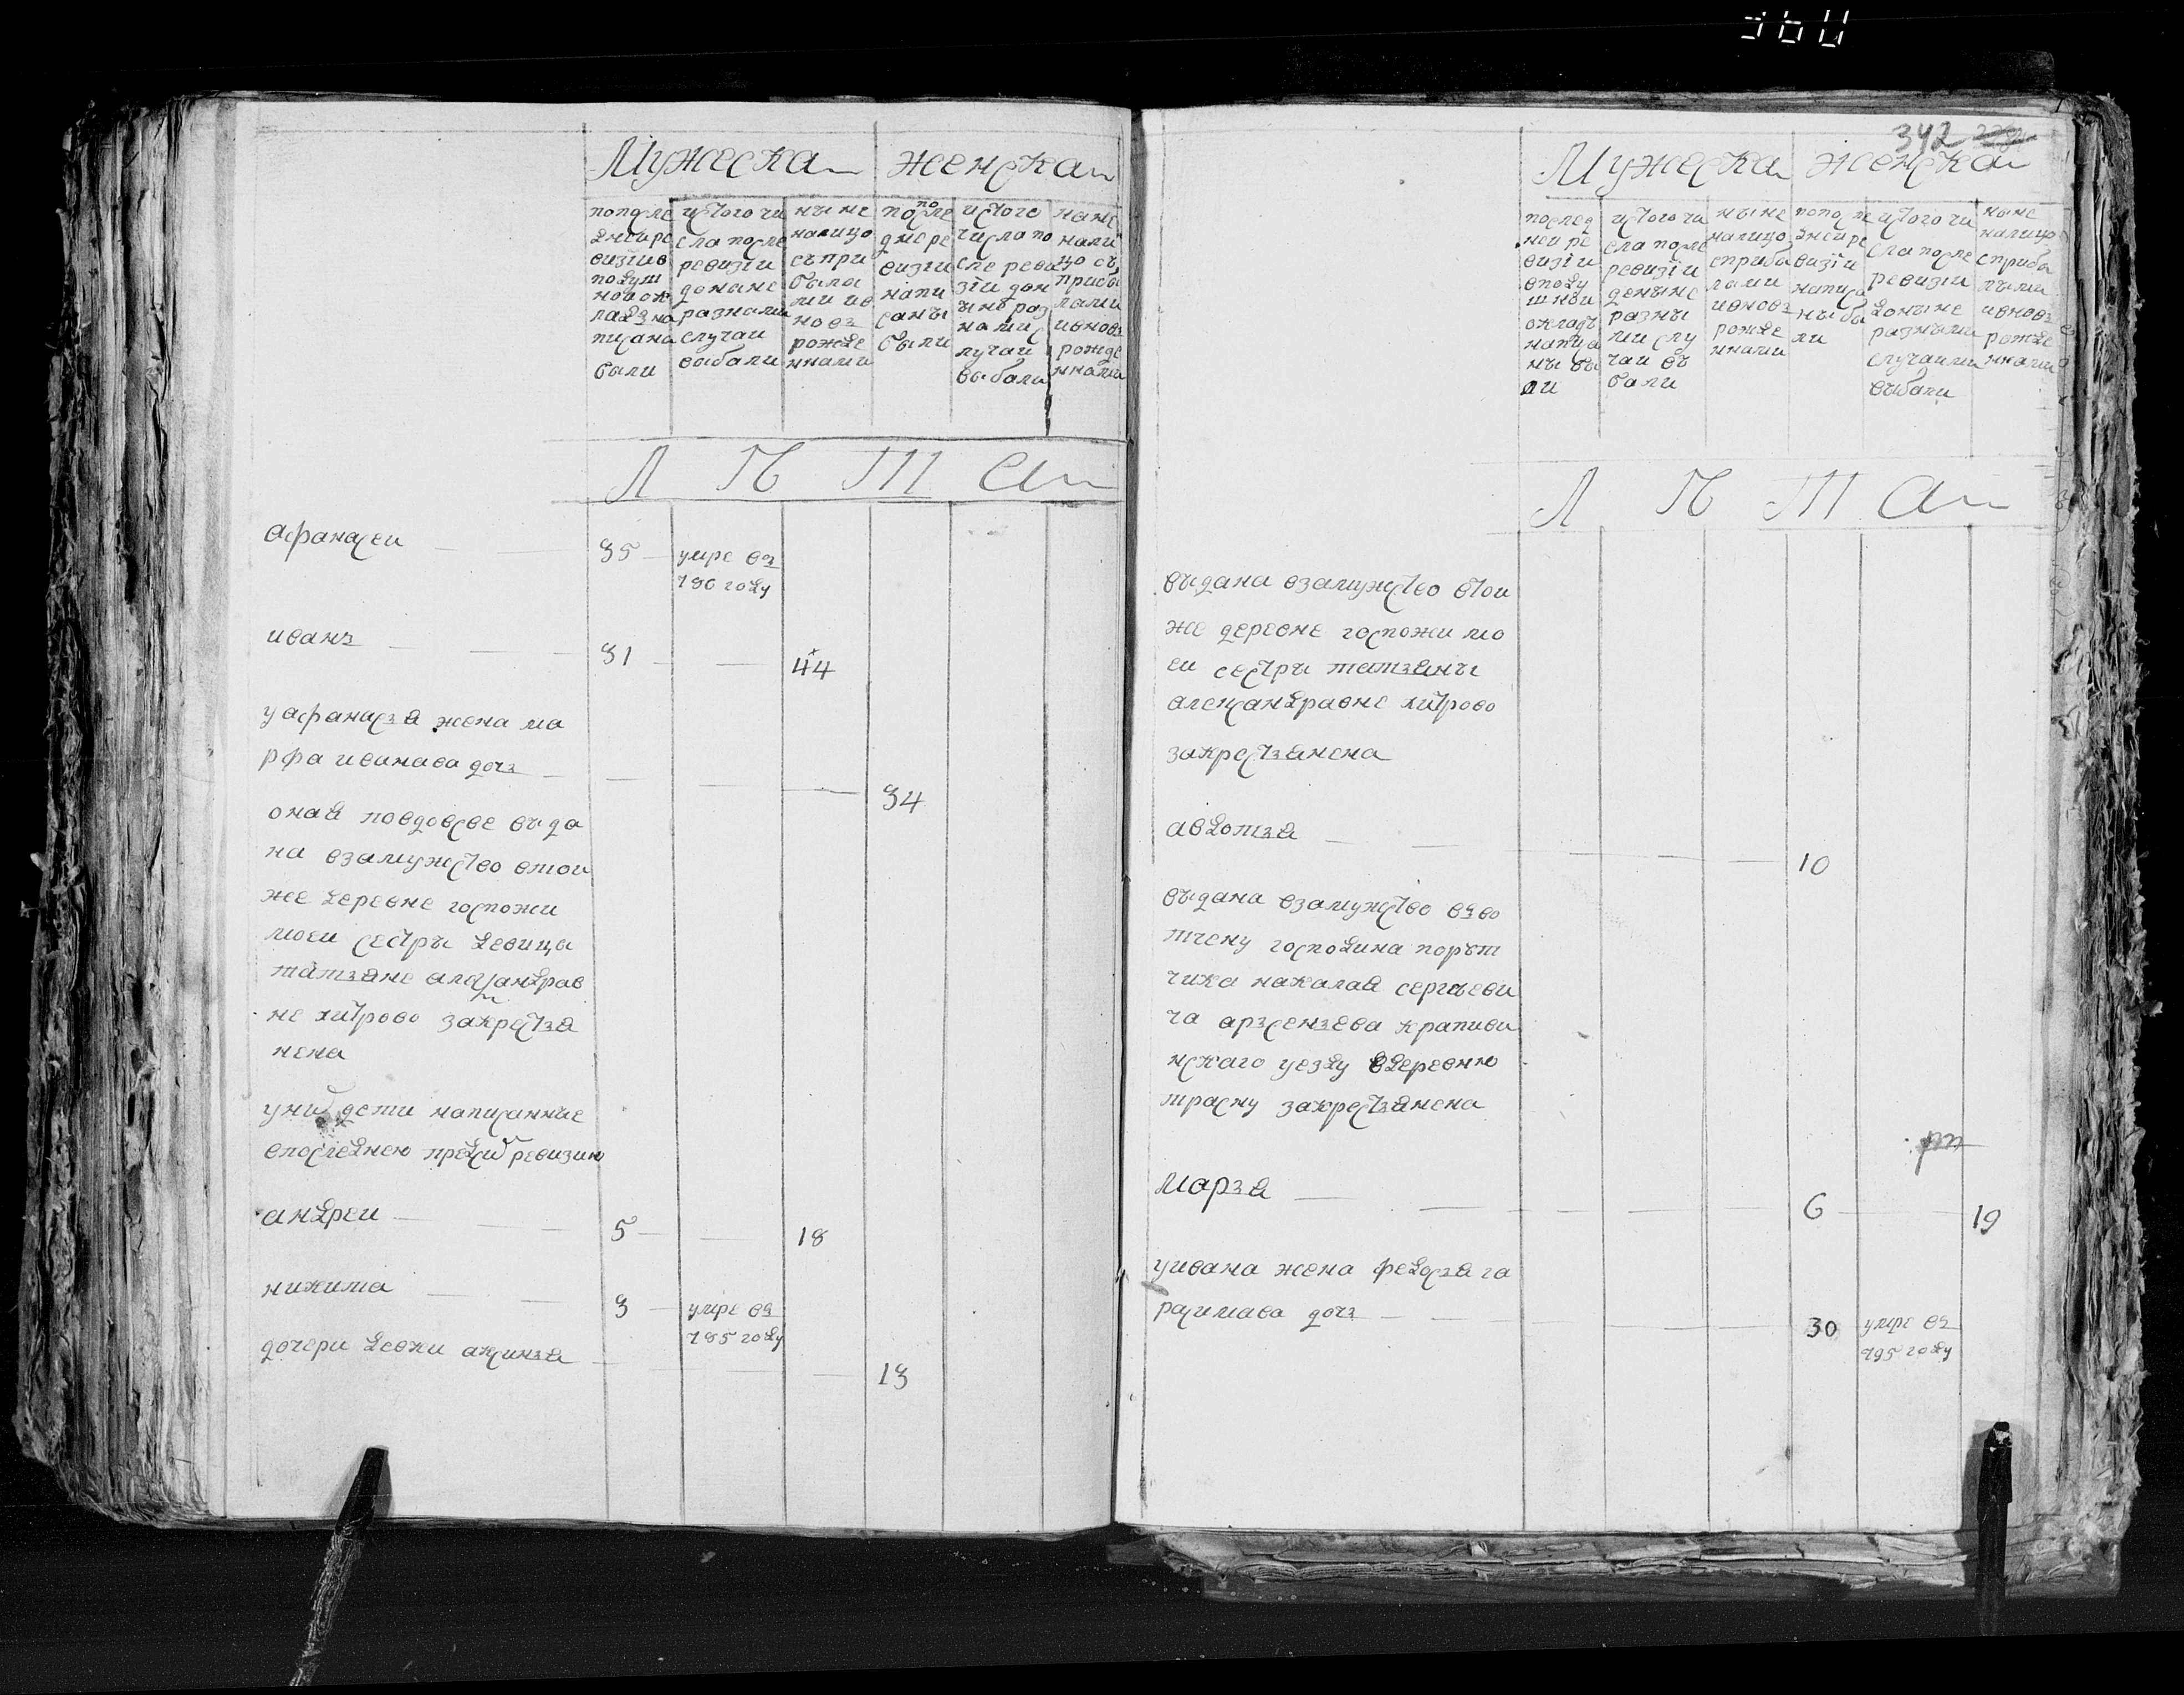 360
Мужеска женска
попосле
днеи ре
визiи в
подуш
нои ок
лад на
писана
были
ис того чи
сла после
ревизiи
доныне
разнами
случаи
выбали
ныне
налицо
съ при
была
ми ив
новъ
рожде
ннами
по после
дне ре
визiи
напи
саны
были
ис того
числа по
сле реви
зiи дон
ынъ раз
нами с
лучаи
выбали
нане
нали
цо съ
прибы
лами
ивновъ
рожде
ннами
Л Ѣ Т А
афанасеи 35 умре въ
786 году
иванъ 31 44
у афанасья жена ма
рфа иванава дочь 34
оная повдовсве выда
на взамужство втои
же деревне госпожи
моеи сестры девицы
татьяне александрав
не хитрово закрестья
нена
уних дети написанные
впоследнею предсих ревизию
андреи 5 18
никита 3 умре въ
785 году
дочери девки аксинья 13
342
Мужеска женска
послед
неи ре
визiи
вподу
шнои
окладъ
написа
ны бы
ли
ис того чи
сла после
ревизiи
деныне
разны
ми слу
чаи въ
бали
ныне
налицо
сприба
лами
ивновъ
рожде
ннами
попосле
днеи ре
визiи
написа
ны бы
ли
ис того чи
сла после
ревизiи
доныне
разными
случаими
выбали
ныне
налицо
сприба
лыми
ивновъ
рожде
ннами
Л Ѣ Т А
выдана взамужство втои
же деревне госпожи мо
еи сестры татьяны
александравне хитрово
закрестьянена
авдотья 10
выдана взамужство въ во
тчену господина порът
чика накалая сергъеви
ча арсеньева крапиви
нскаго уезду вдеревню
трасну закрестьянена
марья 6 19
уивана жена федосья га
расимава дочь 30 умре въ
795 году